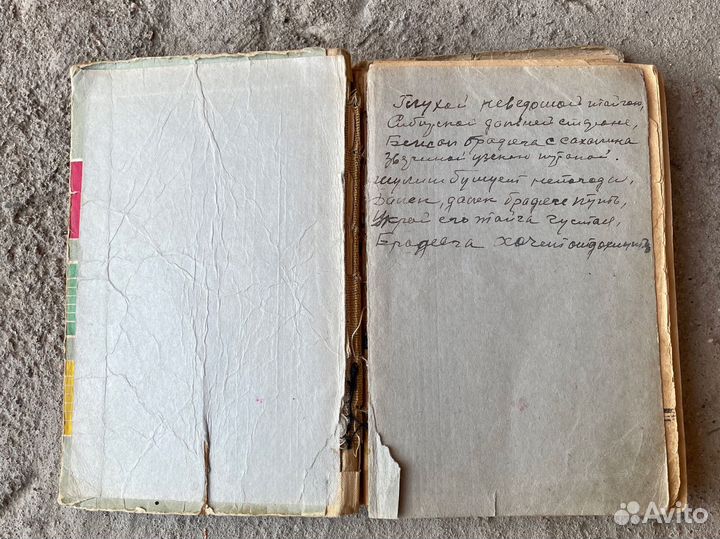 Глухой неведомой тайгою,
Сибирской дальней стороне,
Бежал бродяга с Сахалина
Звериной узкою тропой.
Шумит бушует непогода,
Далек, далек бродяге путь,
Укрой его тайга густая,
Бродяга хочет отдохнуть
Avito